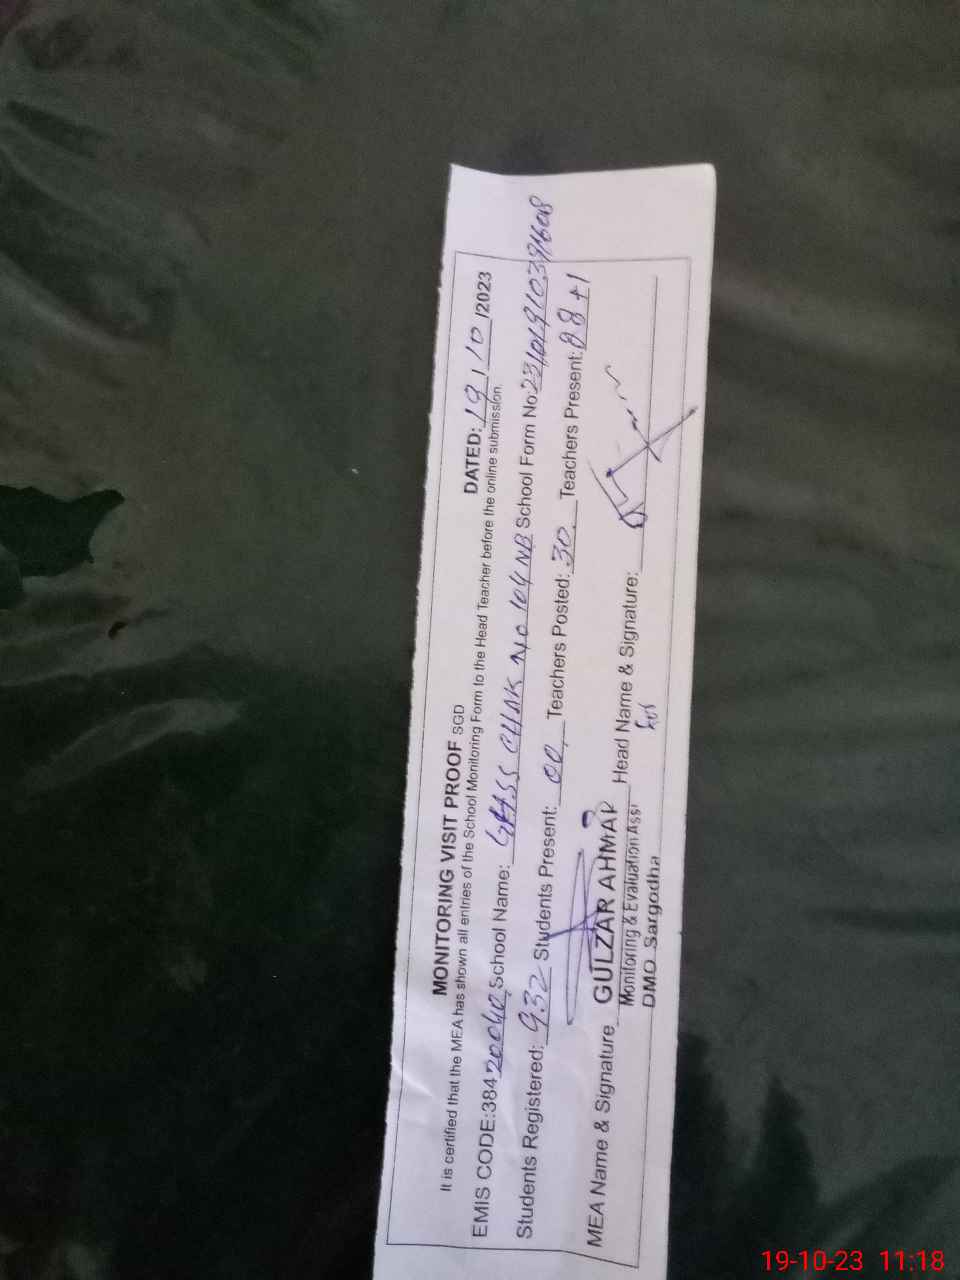 MONITORING VISIT PROOF SGD
DATED: 19/10/2023
It is certified that the MEA has shown all entries of the School Monitoring Form to the Head Teacher before the online submission.
EMIS CODE:38420040 School Name: GHSS CHAK NO 104 NB School Form No:
Students Registered: 932 Students Present: 00 Teachers Posted: 30. Teachers Present: 28+1
MEA Name & Signature GULZAR AHMAD Head Name & Signature:
Monitoring & Evaluation Assi
DMO Sargodha
19-10-23 11:18